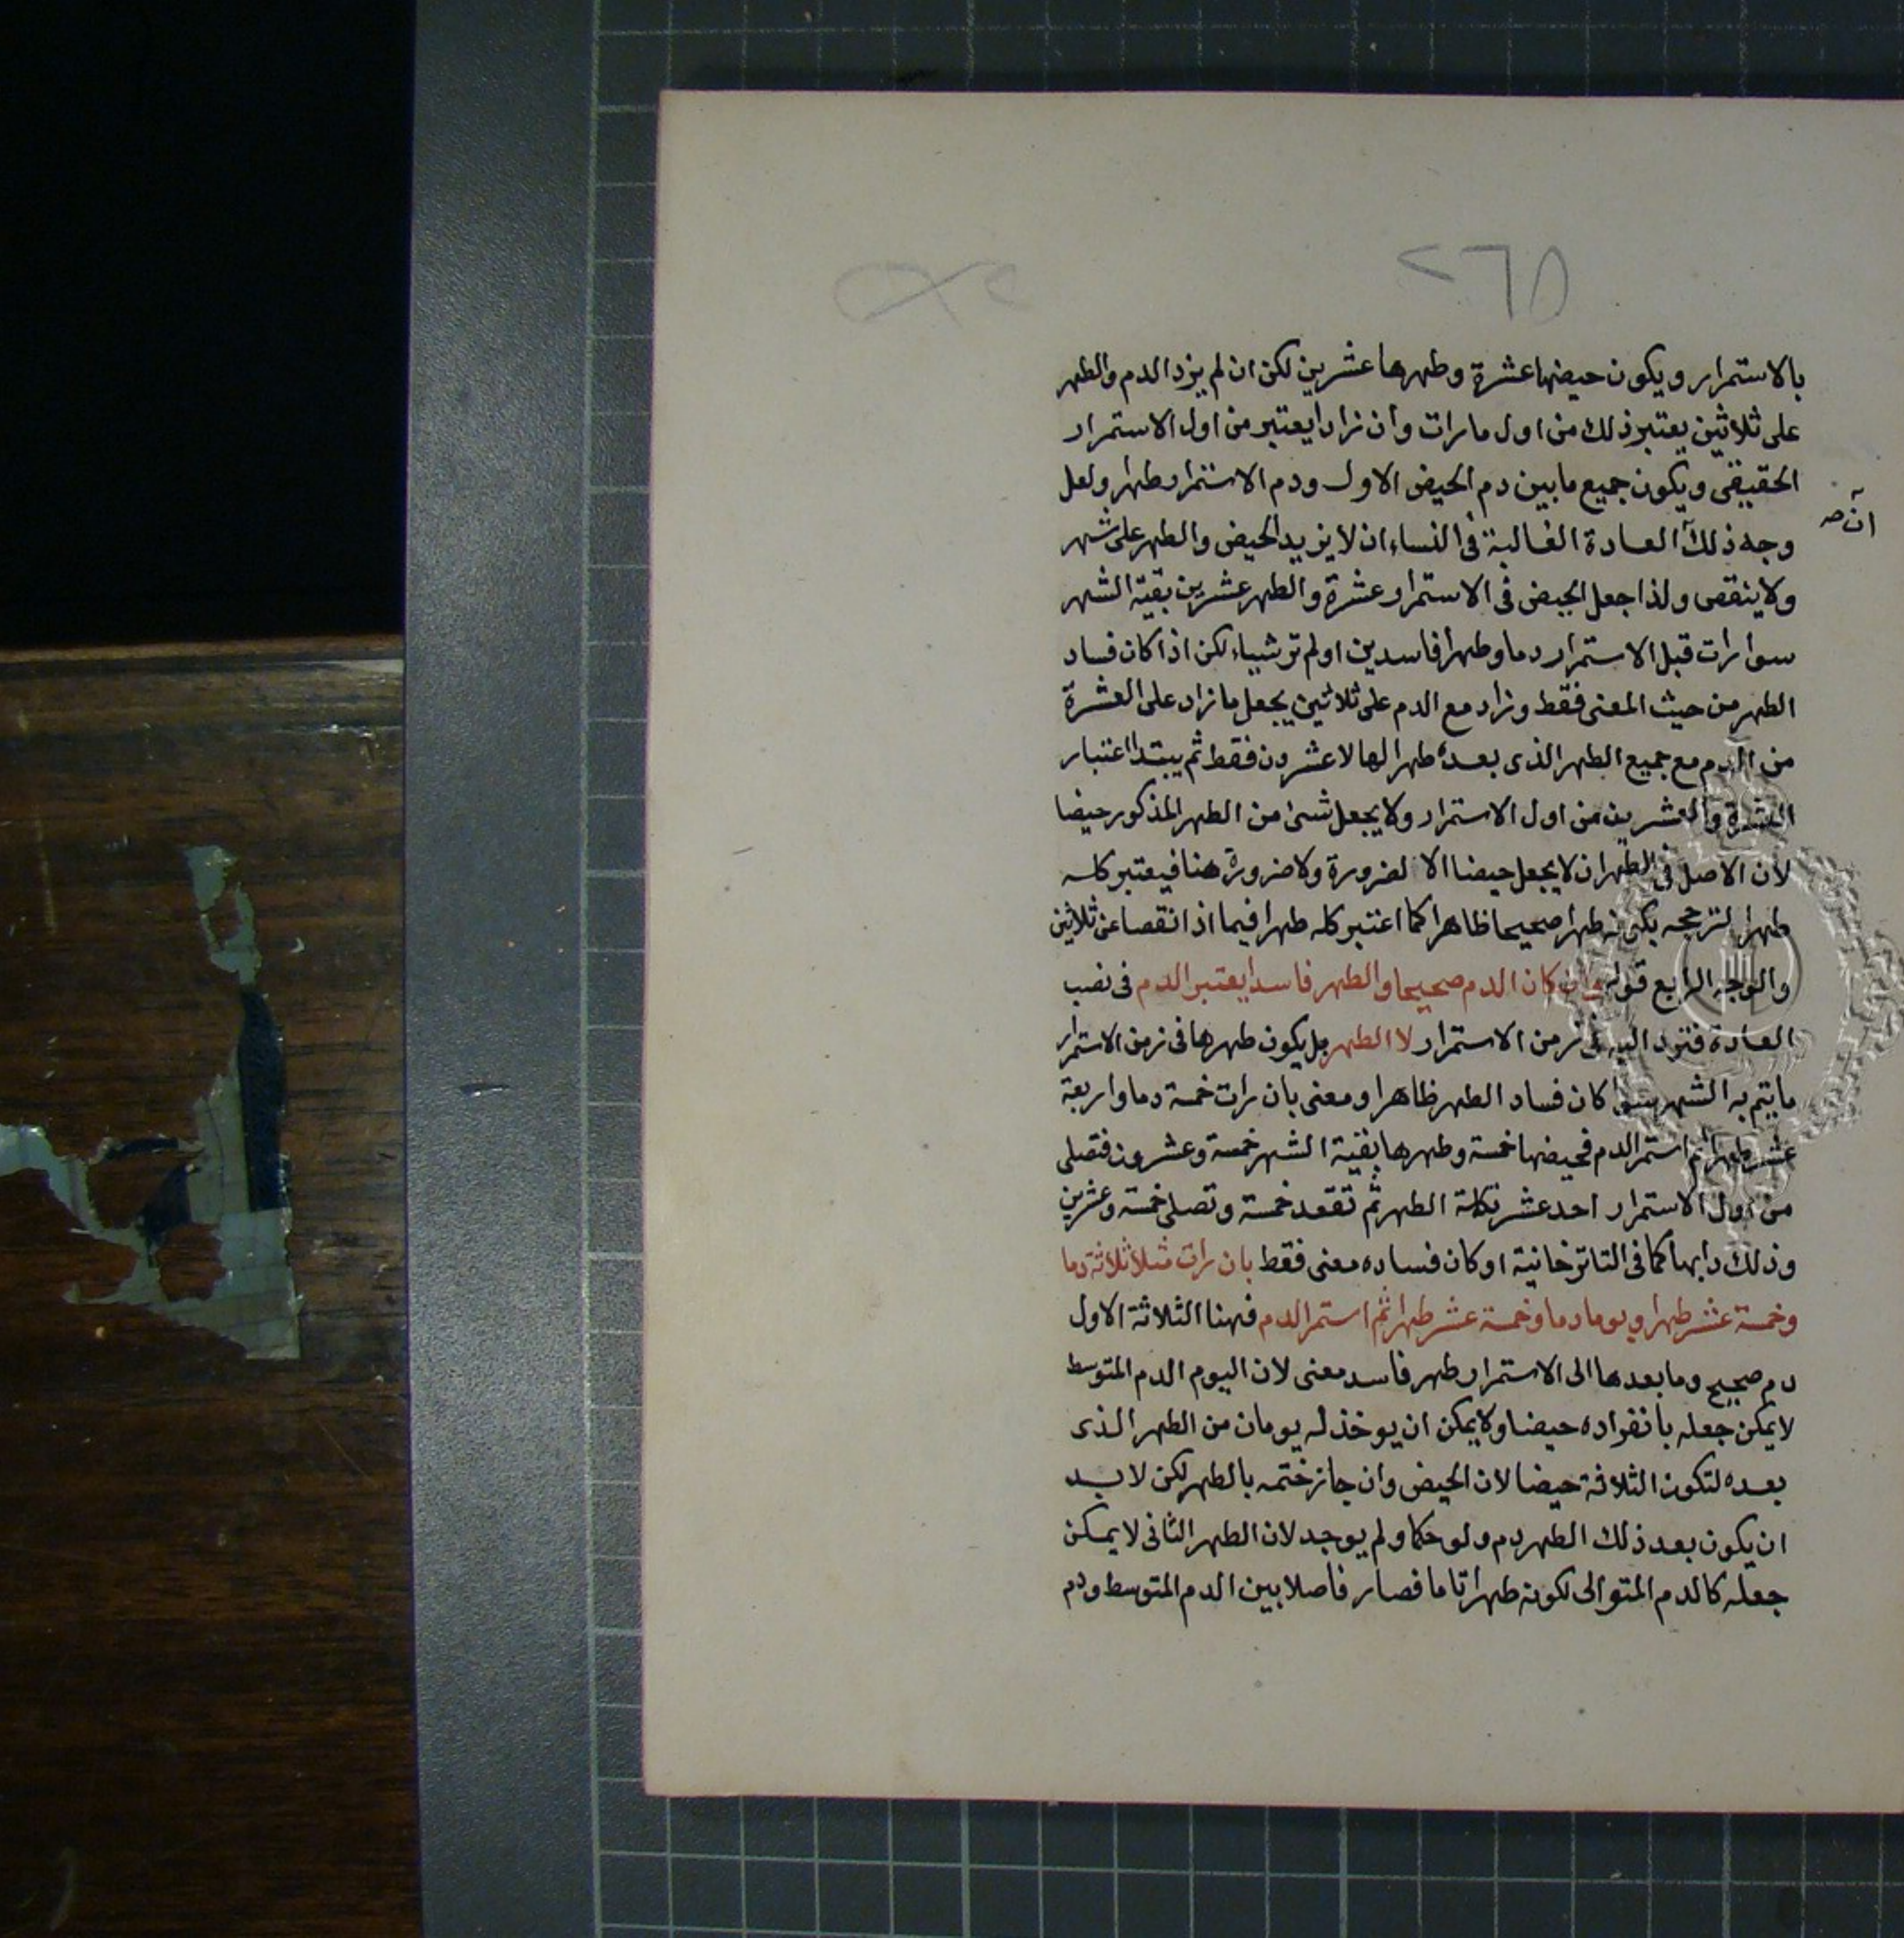 ٢٦٥
بالاستمرار ويكون حيضها عشرة وطهرها عشرين لكن ان لم يزد الدم والطهر
على ثلاثين يعتبر ذلك من اول ما رات وان زادا يعتبر من اول الاستمرار
الحقيقي ويكون جميع ما بين دم الحيض الاول ودم الاستمرار طهرا ولعل
وجه ذلك العادة الغالبة فى النساء ان لا يزيد الحيض والطهر على شهر
ان صح
ولا ينقص ولذا جعل الحيض فى الاستمرار عشرة والطهر عشرين بقية الشهر
سوا رات قبل الاستمرار دما وطهرا فاسدين او لم تر شيياء لكن اذا كان فساد
الطهر من حيث المعنى فقط وزاد مع الدم على ثلاثين يجعل ما زاد على العشرة
من الدم مع جميع الطهر الذى بعده طهرا لها لا عشرون فقط ثم يبتدا اعتبار
العشرة والعشرين من اول الاستمرار ولا يجعل شىء من الطهر المذكور حيضا
لان الاصل فى الطهر ان لا يجعل حيضا الا لضرورة ولا ضرورة هنا فيعتبر كله
طهرا لترجحه بكونه طهرا صحيحا ظاهرا كما اعتبر كله طهرا فيما اذا نقصا عن ثلاثين
والوجه الرابع قوله وان كان الدم صحيحا والطهر فاسدا يعتبر الدم فى نصب
العادة فترد اليه فى زمن الاستمرار لا الطهر بل يكون طهرها فى زمن الاستمرار
ما يتم به الشهر سوا كان فساد الطهر ظاهرا ومعنى بان رات خمسة دما واربعة
عشر طهرا ثم استمر الدم فحيضها خمسة وطهرها بقية الشهر خمسة وعشرون فتصلى
من اول الاستمرار احد عشر تكملة الطهر ثم تقعد خمسة وتصلى خمسة وعشرين
وذلك دابها كما فى التاترخانية او كان فساده معنى فقط بان رات مثلا ثلاثة دما
وخمسة عشر طهرا ويوما دما وخمسة عشر طهرا ثم استمر الدم فهنا الثلاثة الاول
دم صحيح وما بعدها الى الاستمرار طهر فاسد معنى لان اليوم الدم المتوسط
لا يمكن جعله بانفراده حيضا ولا يمكن ان يوخذ له يومان من الطهر الذى
بعده لتكون الثلاثة حيضا لان الحيض وان جاز ختمه بالطهر لكن لا بد
ان يكون بعد ذلك الطهر دم ولو حكما ولم يوجد لان الطهر الثانى لا يمكن
جعله كالدم المتوالى لكونه طهرا تاما فصار فاصلا بين الدم المتوسط ودم